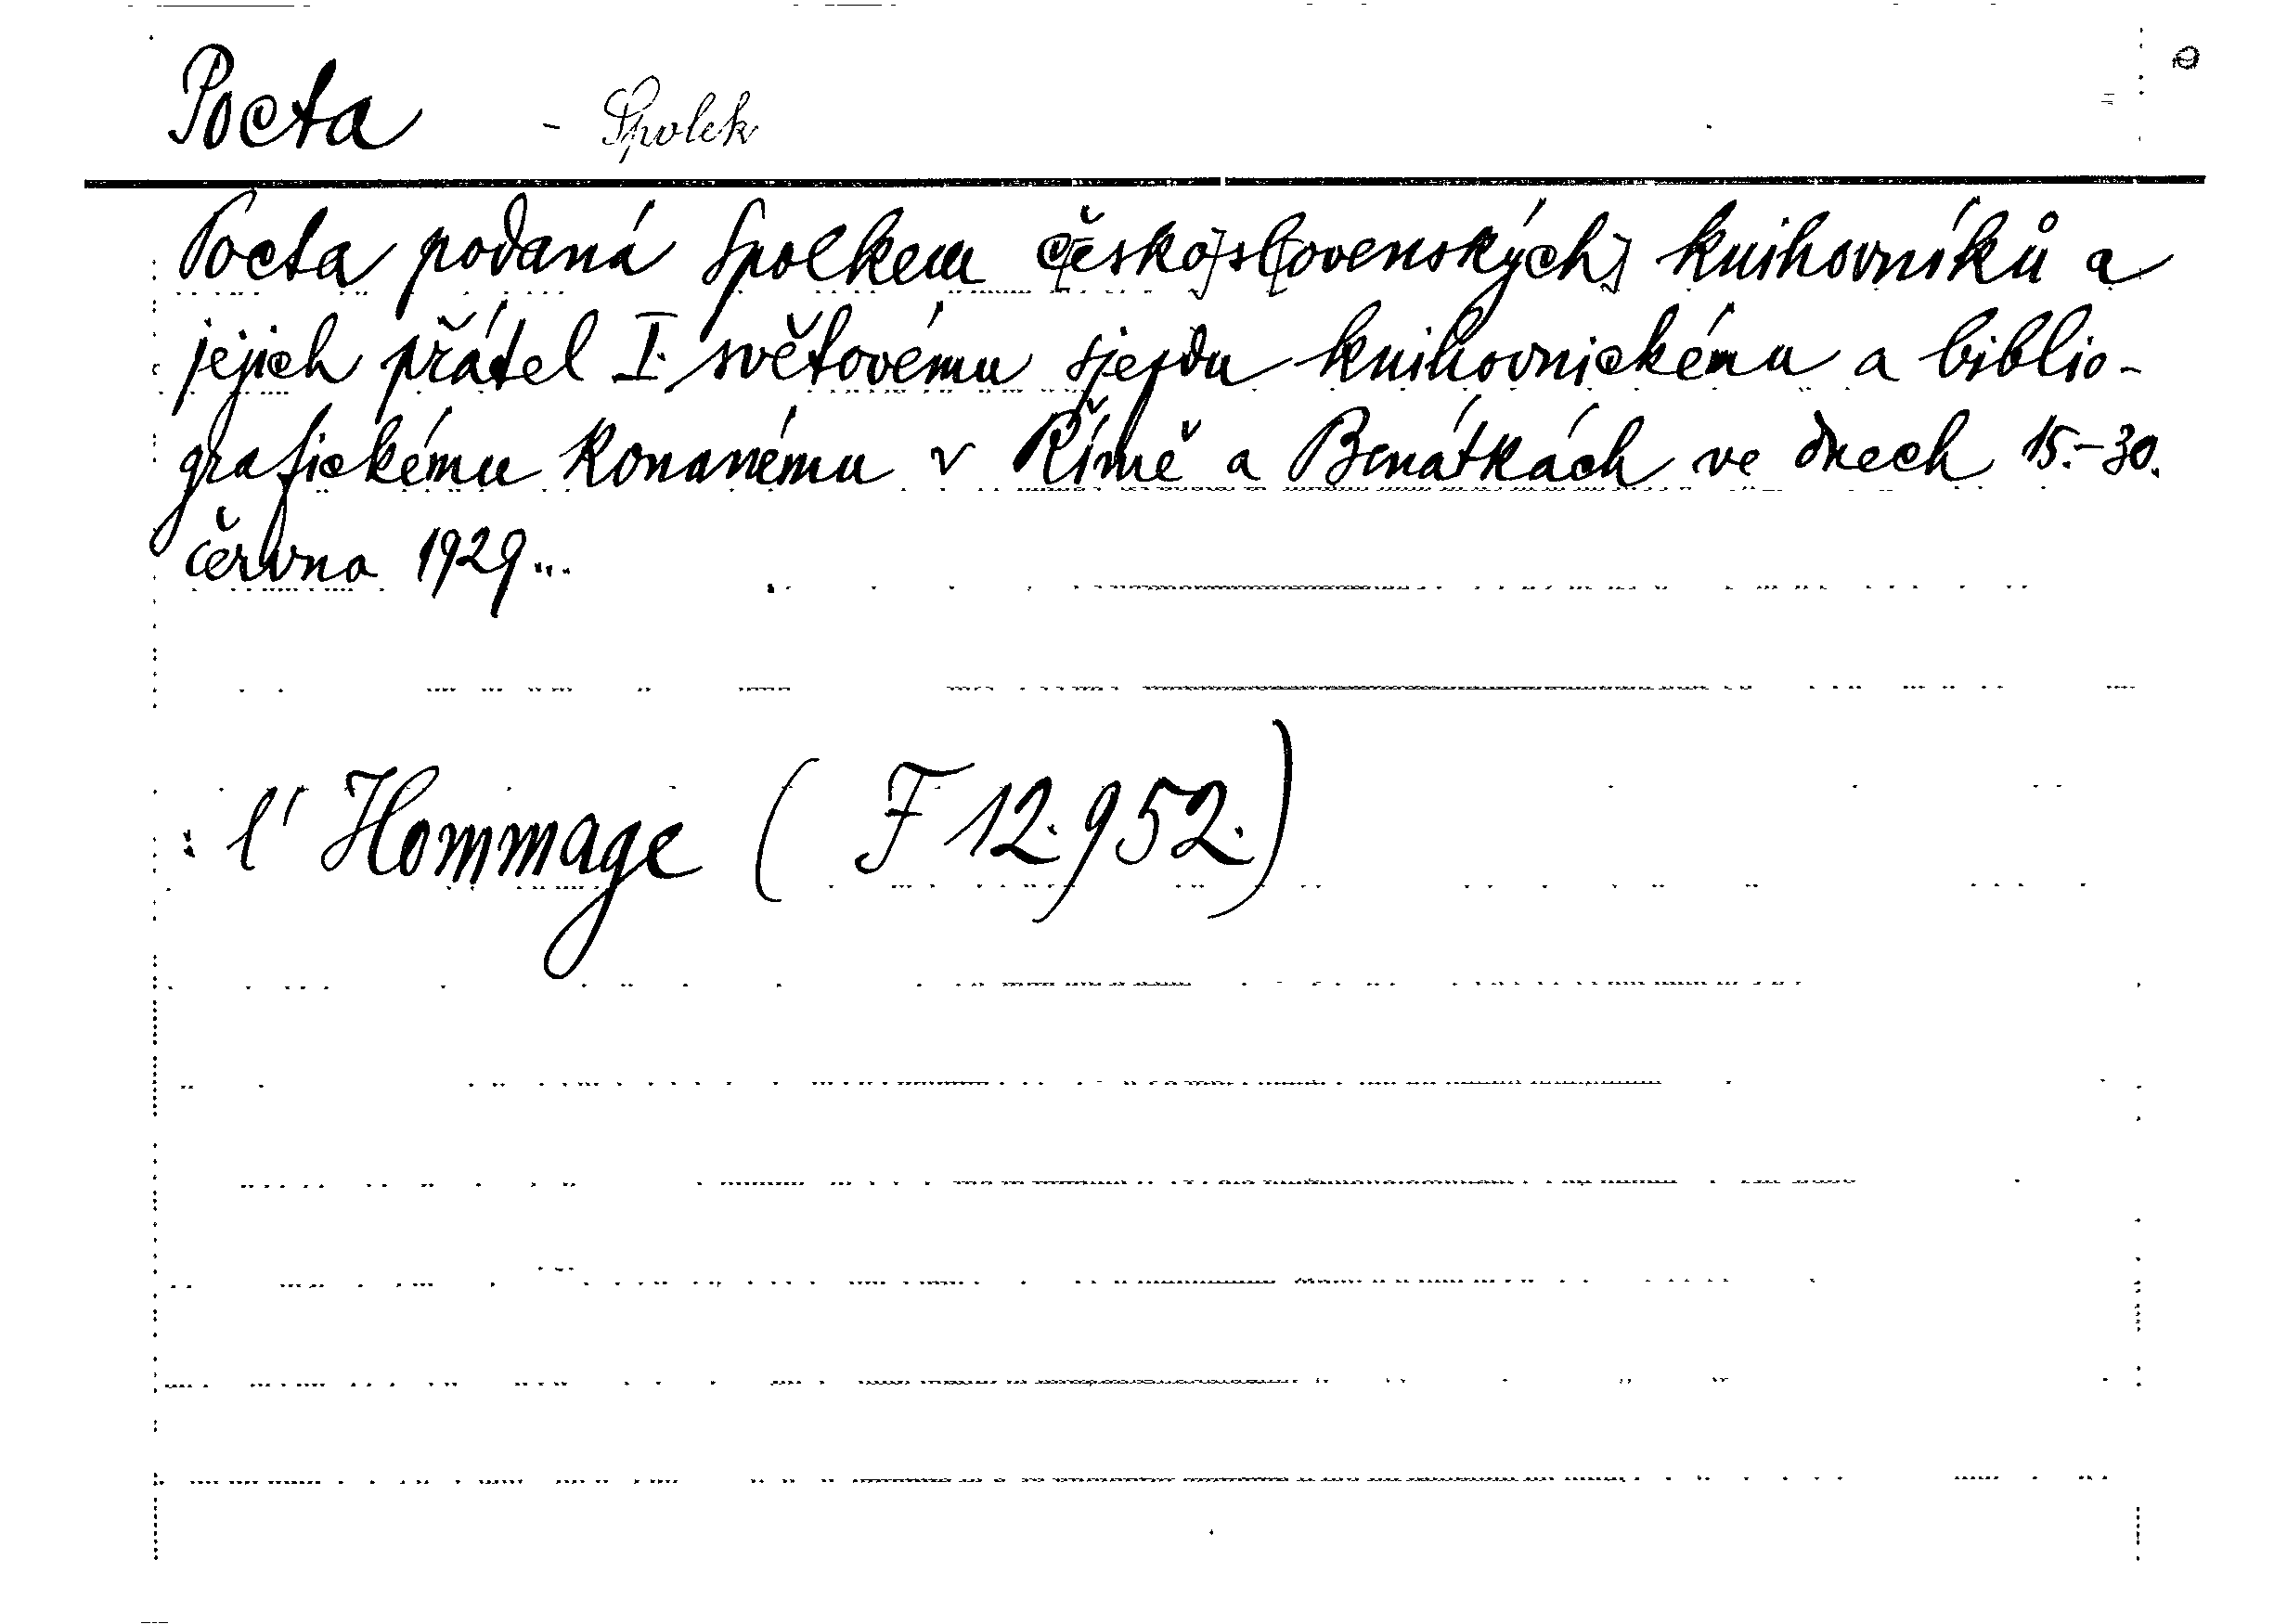 Pocta - Spolek
Pocta podaná Spolkem č[esko]sl[ovenských] knihovníků a
jejich přátel I. světovému sjezdu knihovnickému a biblio-
grafickému konanému v Římě a Benátkách ve dnech 15.-30.
června 1929...
: l' Hommage ( F 12.952.)